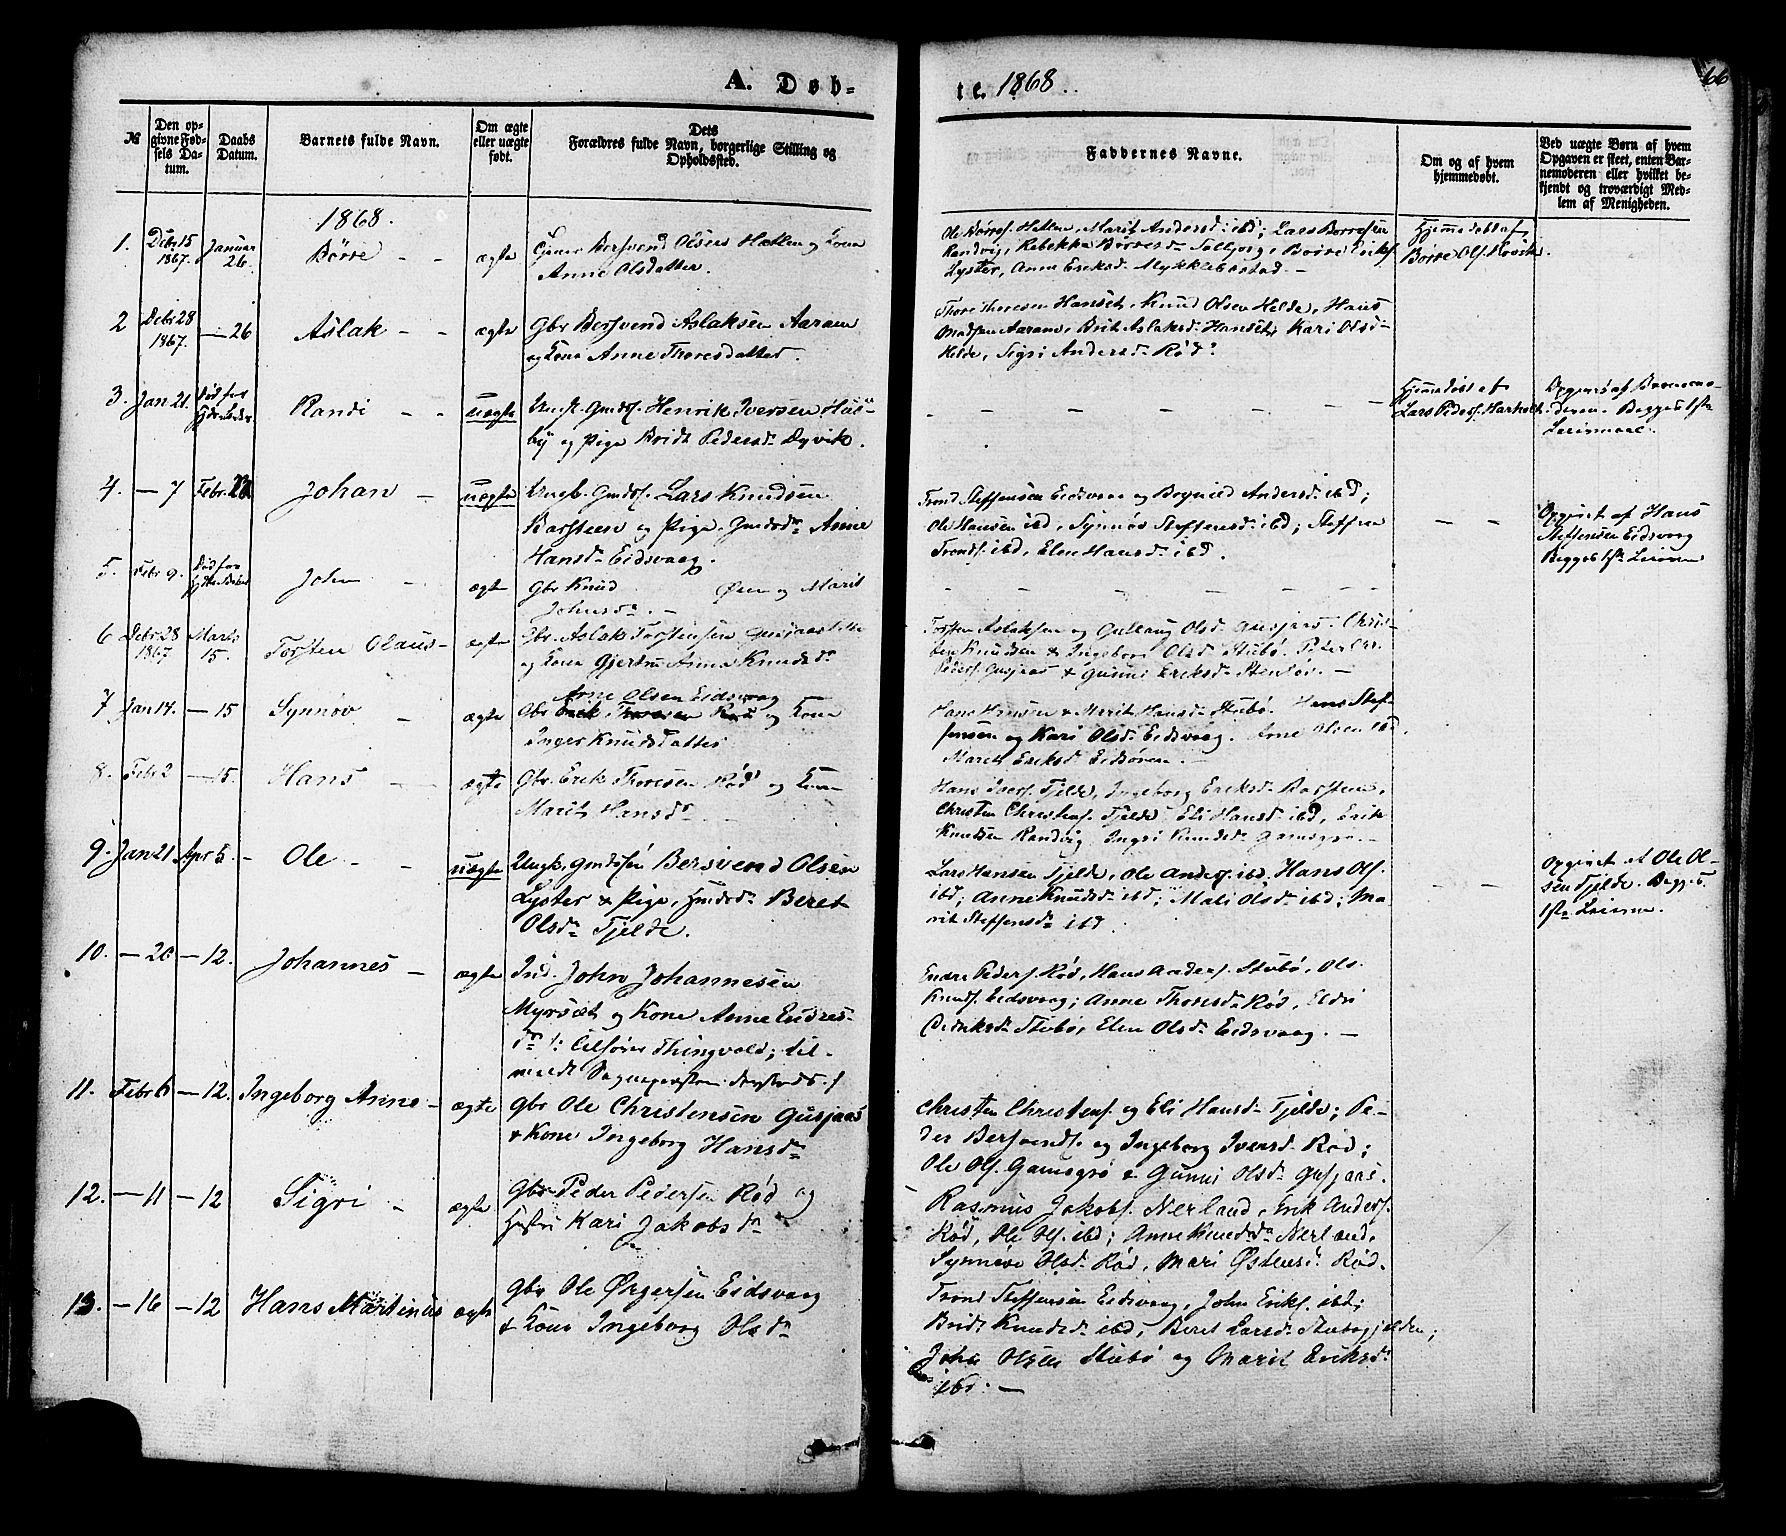 A. Døb-
te. 1868.
66
№
Den op-
givne Fød-
sels Da-
tum.
Daabs
Datum.
Barnets fulde Navn.
Om ægte
eller uægte
født.
Dets
Forældres fulde Navn, borgerlige Stilling og
Opholdssted.
Faddernes Navne.
Om og af hvem
hjemmedøbt.
Ved uægte Børn af hvem
Opgaven er skeet, enten Bar-
nemoderen eller hvilket be-
kjendt og troværdigt Med-
lem af Menigheden.
1868.
1. Debr 15 1867. Januar 26. Børre - - ægte
Bersvend Olsen Hatlen og Kone
Anne Olsdatter.
Ole Børres. Hatlen, Marit Andersd. ibd; Lars Børresen
Randvig, Rebekka Børresd. Solbjørg, Børre Eriks.
Lyster, Anne Eriksd. Myklebostad. -
Hjemmedøbt af
Børre Ols. Røvik.
2 Debr 28 1867. - 26 Aslak - - ægte
Gbr Bersvend Aslaksen Aaram
og Kone Anne Thoresdatter.
Thore Thoresen Hanset, Knud Olsen Helde, Hans
Madsen Aaram, Brit Aslaksd. Hanset, Kari Olsd.
Helde, Sigri Andersd. Rød.
3. Jan 21. Død før Randi - - uægte
Ungk. Gmdss. Henrik Iversen Hus-
by og Pige Bridt Pedersd. Dyvik.
- - - - - - -
Hjemmedøbt af
Lars Peders. Harholt
Opgivet af Barnemo-
deren. Begges 1ste
Leiermaal.
4. - 7 Febr. Johan - uægte
Ungk. Gmdss. Lars Knudsen
Barsteen og Pige, Gmdsdr Anne
Hansd. Eidsvaag.
Trond Steffensen Eidsvaag og Andersd. ibd;
Ole Hansen ibd, Synnøv Steffensd. ibd; Steffen
Tronds. ibd, Elen Hansd. ibd.
- -
Opgivet af Hans
Steffensen Eidsvaag
Begges 1ste Leierm
5. Febr 9. Død før John - ægte
Gbr Knud Øren og Marit
Johnsdr. -
- - - - - - -
6 Debr 28 1867 Marts 15. Torsten Olaus - ægte
Gbr. Aslak Torstensen
og Kone Gjertru Anna Knudsdr
Torsten Aslaksen og Gullaug Olsd. Gusjaas. Chris-
ten Knudsen & Ingeborg Olsd. Stubø. Peter
Peders. Gusjaas & Gunni Eriksd. -
7 Jan 14. - 15 Synnøv - ægte
Arne Olsen Eidsvaag
Gbr Erik Thoresen Rød og Kone
Inger Knudsdatter
Hans Hansen & Marit Hansd. Stubø. Hans Stef-
fensen og Kari Olsd. Eidsvaag. Arne Olsen ibd,
Marit Eriksd Eidsøren. -
8. Febr 2 - 15. Hans - - ægte
Gbr. Erik Thoresen Rød og Kone
Marit Hansd.
Hans Ivers. Tjelde, Ingeborg Eriksd. Barsten,
Christen Christens. Tjelde, Eli Hansd. ibd, Erik
Knudsen Randvig, Ingri Knudsd. Gamsgrø. -
9. Jan 21 Apr 5. - Ole - - uægte
Ungk. Gmdssøn Bersvend Olsen
Lyster & Pige, Gmdsd. Beret
Olsdr Tjelde.
Lars Hansen Tjelde, Ole Anders. ibd. Hans Ols.
ibd; Anne Knudsd. ibd; Mali Olsd. ibd; Ma-
rit Steffensdr ibd.
- -
Opgivet af Ole Ol-
sen Tjelde. Begges
1ste Leierm.
10. - 20 - 12. Johannes - ægte
Ind. John Johannesen
Myrset og Kone Anne Endres-
dr Thingvold; til-
meldt Sognepræsten
Endre Peders. Rød, Hans Anders. Stubø, Ols
Knuds. Eidsvaag; Anne Thoresd. Rød, Eldri
Stubø, Elen Olsd. Eidsvaag. -
11. Febr 6 - 12. Ingeborg Anne - ægte
Gbr Ole Christensen Gusjaas
& Kone Ingeborg Hansdr
Christen Christens. og Eli Hansd. Tjelde; Pe-
der Bersvends. og Ingeborg Iversd. Rød;
Ole Ols. Gamsgrø & Gunni Olsd. Gusjaas.
12. - 11 - 12 Sigri - ægte
Gbr Peder Pedersen Rød og
Hustru Kari Jakobsdr
Rasmus Jakobs. Nerland, Erik Anders.
Rød, Ole Ols. ibd; Anne Knudsdr Nerland,
Synnøve Olsd. Rød, Mari Østensd. Rød.
13. - 16 - 12 Hans Martinus ægte
Gbr Ole Ørgersen Eidsvaag
& Kone Ingeborg Olsdr
Trond Steffensen Eidsvaag, John Eriks. ibd;
Bridt Knudsd. ibd, Beret Larsd. Stubøgjelden;
John Olsen Stubø og Marit Eriksd.
ibd. -